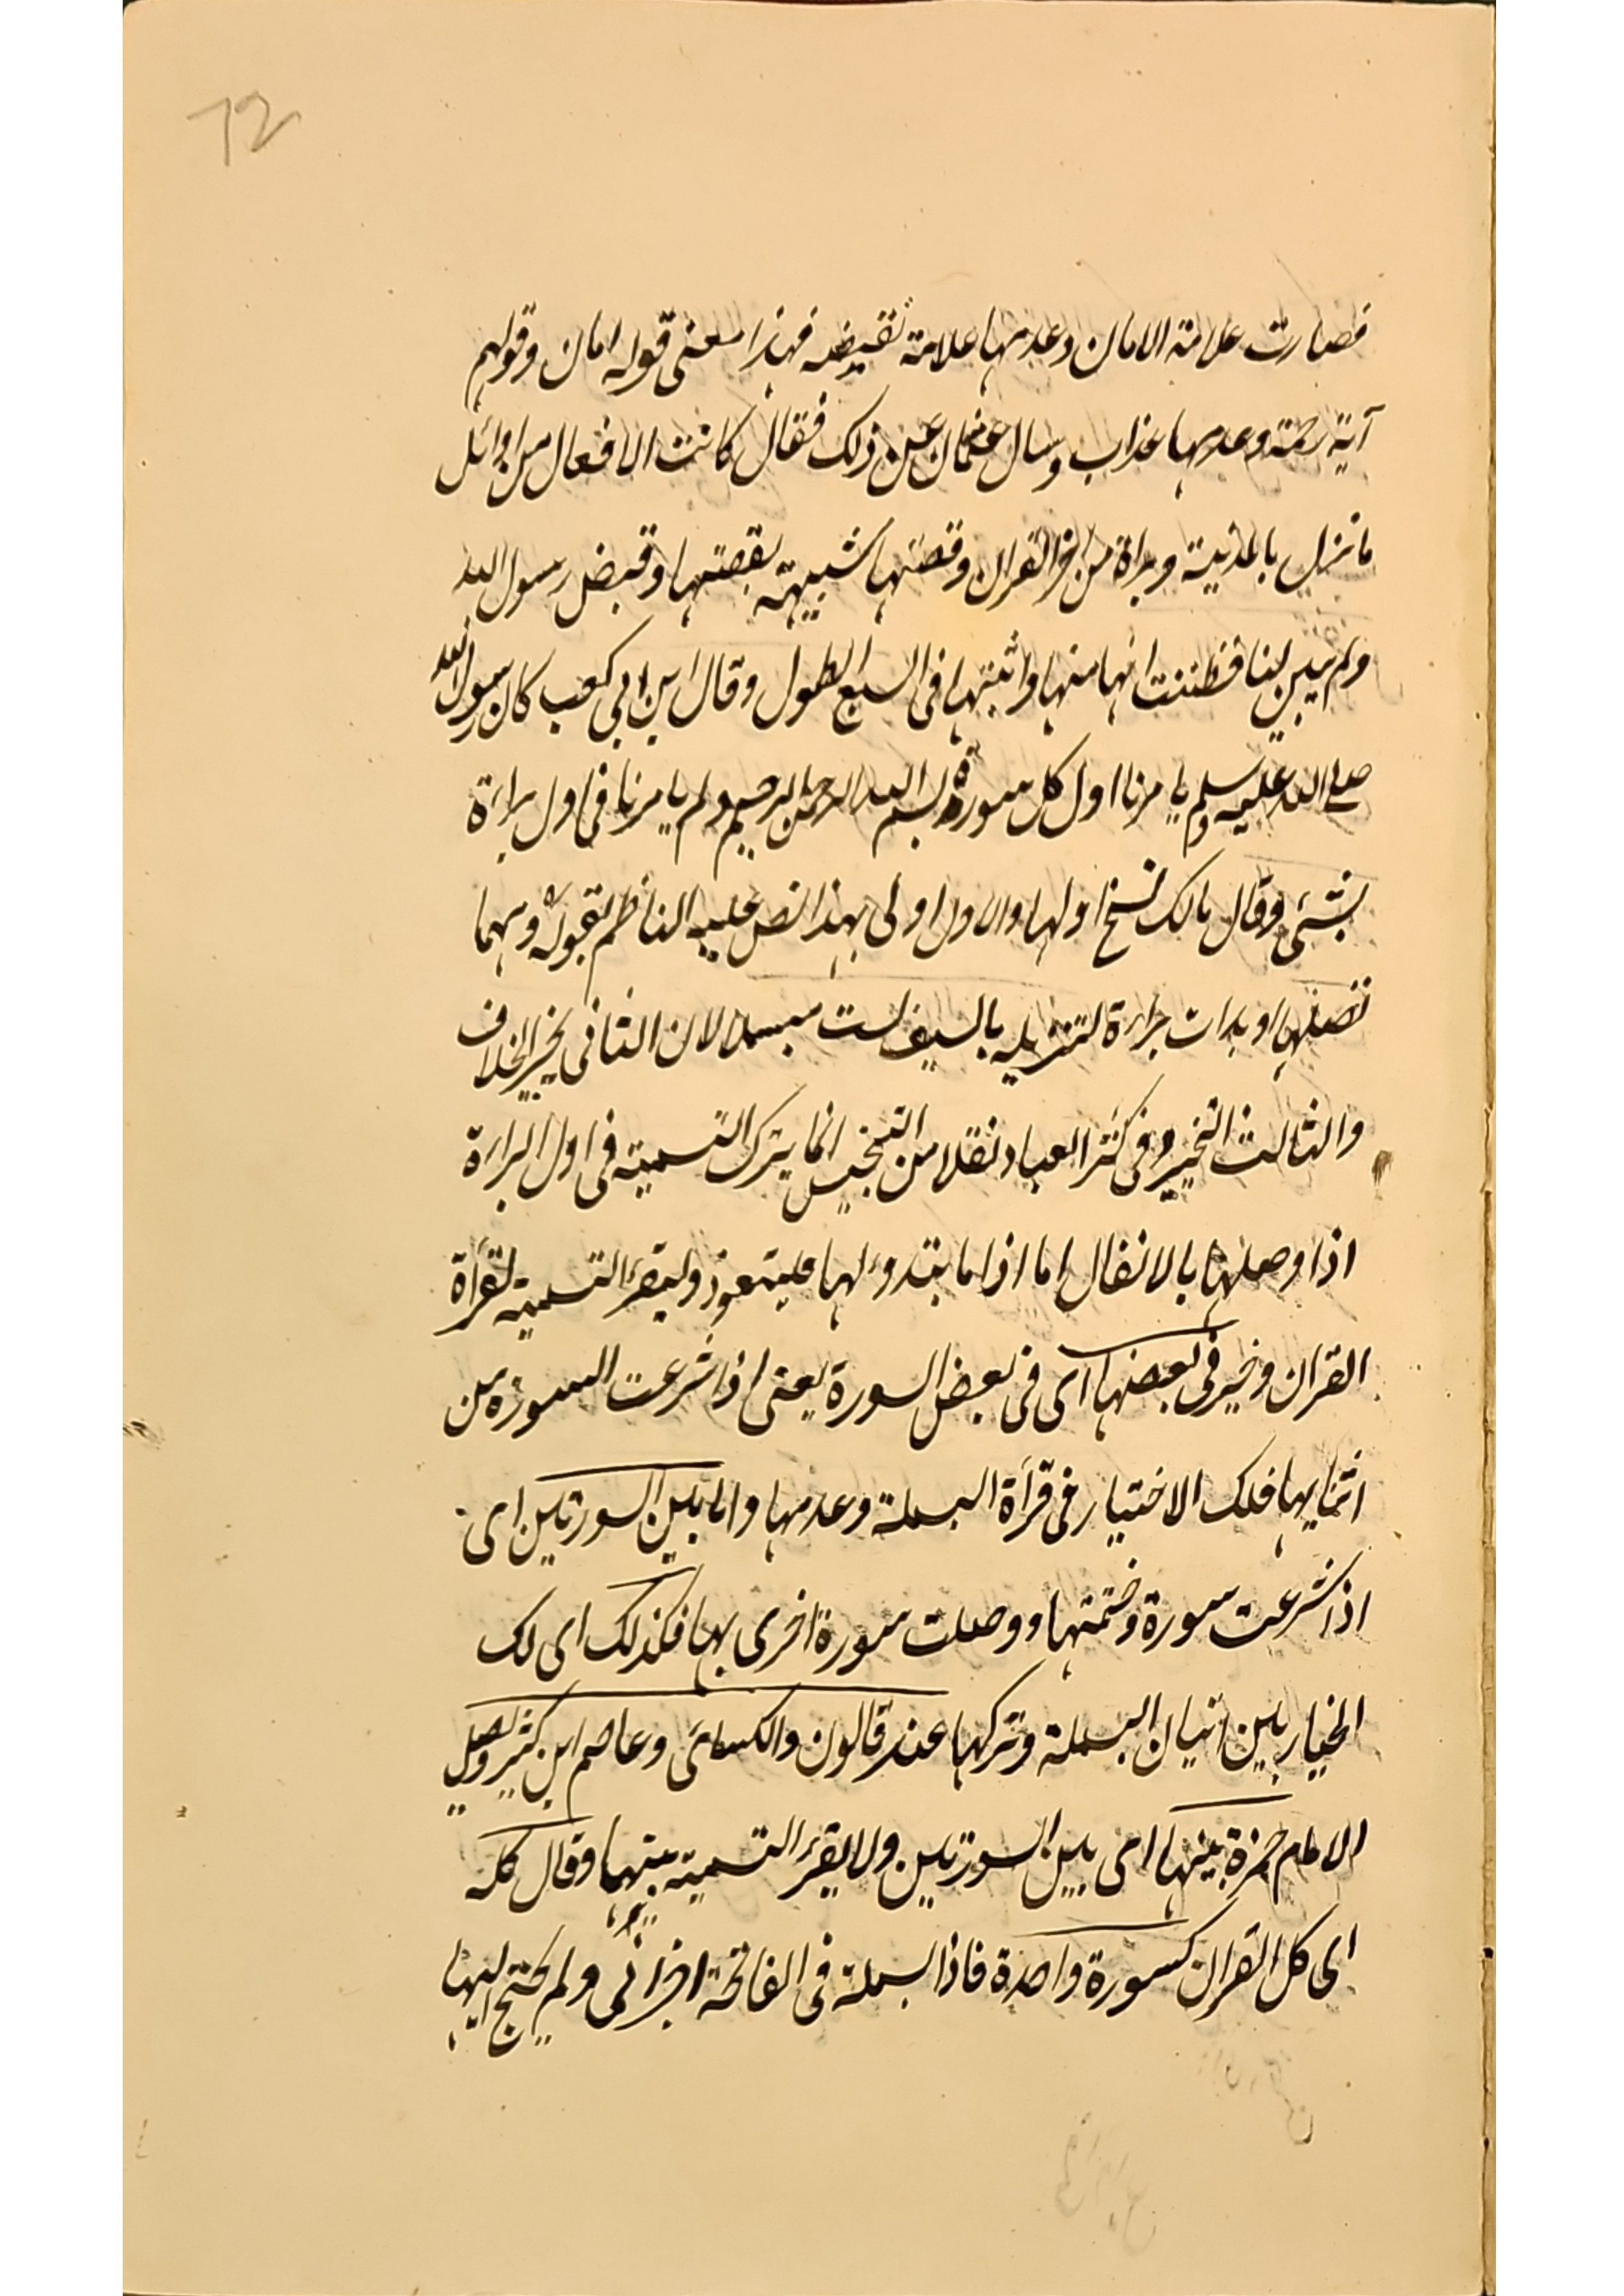 72
فصارت علامة الامان وعدمها علامة نقيضه فهذا معنى قوله امان وقولهم
آية رحمة وعدمها عذاب وسال عثمان عن ذلك فقال كانت الانفعال من اوائل
ما نزل بالمدنية وبراة من اخر القران وقصتها شبيهة بقصتها وقبض رسول الله
ولم يبين لنا فظننت انها منها واثبتها فى السبع الطول وقال ابن ابي كعب كان رسول الله
صلى الله عليه وسلم يا مرنا اول كل سورة بسم الله الرحمن الرحيم ولم يا مرنا فى اول براءة
بشئ وقال مالك نسخ اولها والاول اولى بهذا نص عليه الناظم بقوله ومهما
تصلها او بدات براءة لتنزيله بالسيف لست مبسملا لان الثانى يخير الخلاف
والثالث التخيير وفى كنز العباد نقلا من التجنيس انما يترك التسمية فى اول البراءة
اذا وصلها بالانفال اما اذا ما بتدء لها فليتعوذ وليقرء التسمية لقرأة
القران وخير فى بعضها اى فى بعض السورة يعنى اذا شرعت السورة من
اثنايها فلك الاختيار فى قرأة البسملة وعدمها واما بين السورتين اى
اذا شرعت سورة وختمتها ووصلت سورة اخرى بها فكذلك اى لك
الخيار بين اتيان البسملة وتركها عند قالون والكسائ وعاصم ابن كثير وليصل
الامام حمزة بينها اى بين السورتين ولا يقرء التسمية بينهما وقال كله
اى كل القران كسورة واحدة فاذا بسملة فى الفاتحة اجزائى ولم يحتج اليها